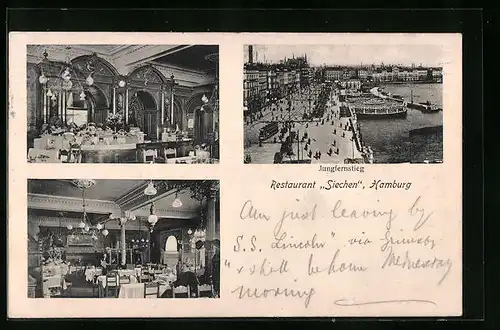 Jungfernstieg
Restaurant „Siechen", Hamburg
Am just leaving by
S.S. Lincoln" via Grimsby
" & shall be home Wednesday
morning